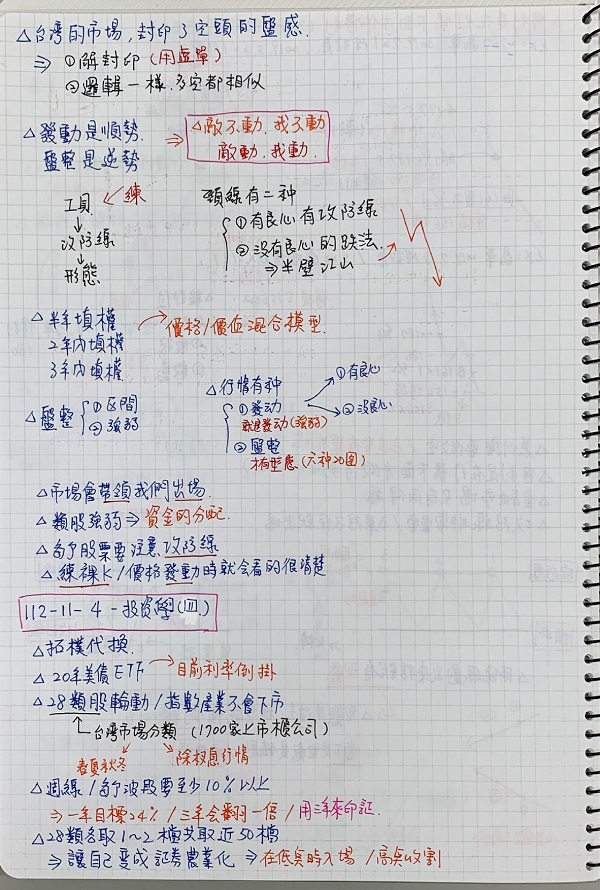 △台湾的市場,封印了空頭的盤感.
⇒ ①解封印(用虛單)
②邏輯一樣.多空都相似
△發動是順勢.
盤整是逆勢
⇒ △敵不動.我不動
敵動.我動.
工具 ← 練
↓
攻防線
↓
形態
頸線有二种
①有良心有攻防線
②没有良心的跌法.
⇒半壁江山
△半年填權
2年内填權
3年内填權
→價格/價值混合模型.
△盤整 ①区間
②強弱
△行情有种
①發动 → ①有良心
→ ②没良心
就是發动(強弱)
②盤整
才有型態(六种20图)
△市場會带領我們出場.
△類股強弱⇒資金的分配.
△每个股票要注意攻防線
△練裸K/價格發動時就会看的很清楚
112-11-4-投資學(四.)
△拓樸代換.
△20年美債ETF →目前利率倒掛
△28類股輪動/指数產業不會下市
台湾市場分類 (1700家上市櫃公司)
春夏秋冬 除权息行情
△週線/每个波段要至少10%以上
⇒一年目標24%/三年会翻一倍/用三年來印証.
△28類各取1~2檔共取近50檔
⇒讓自己变成証券農業化 ⇒在低点時入場/高点收割